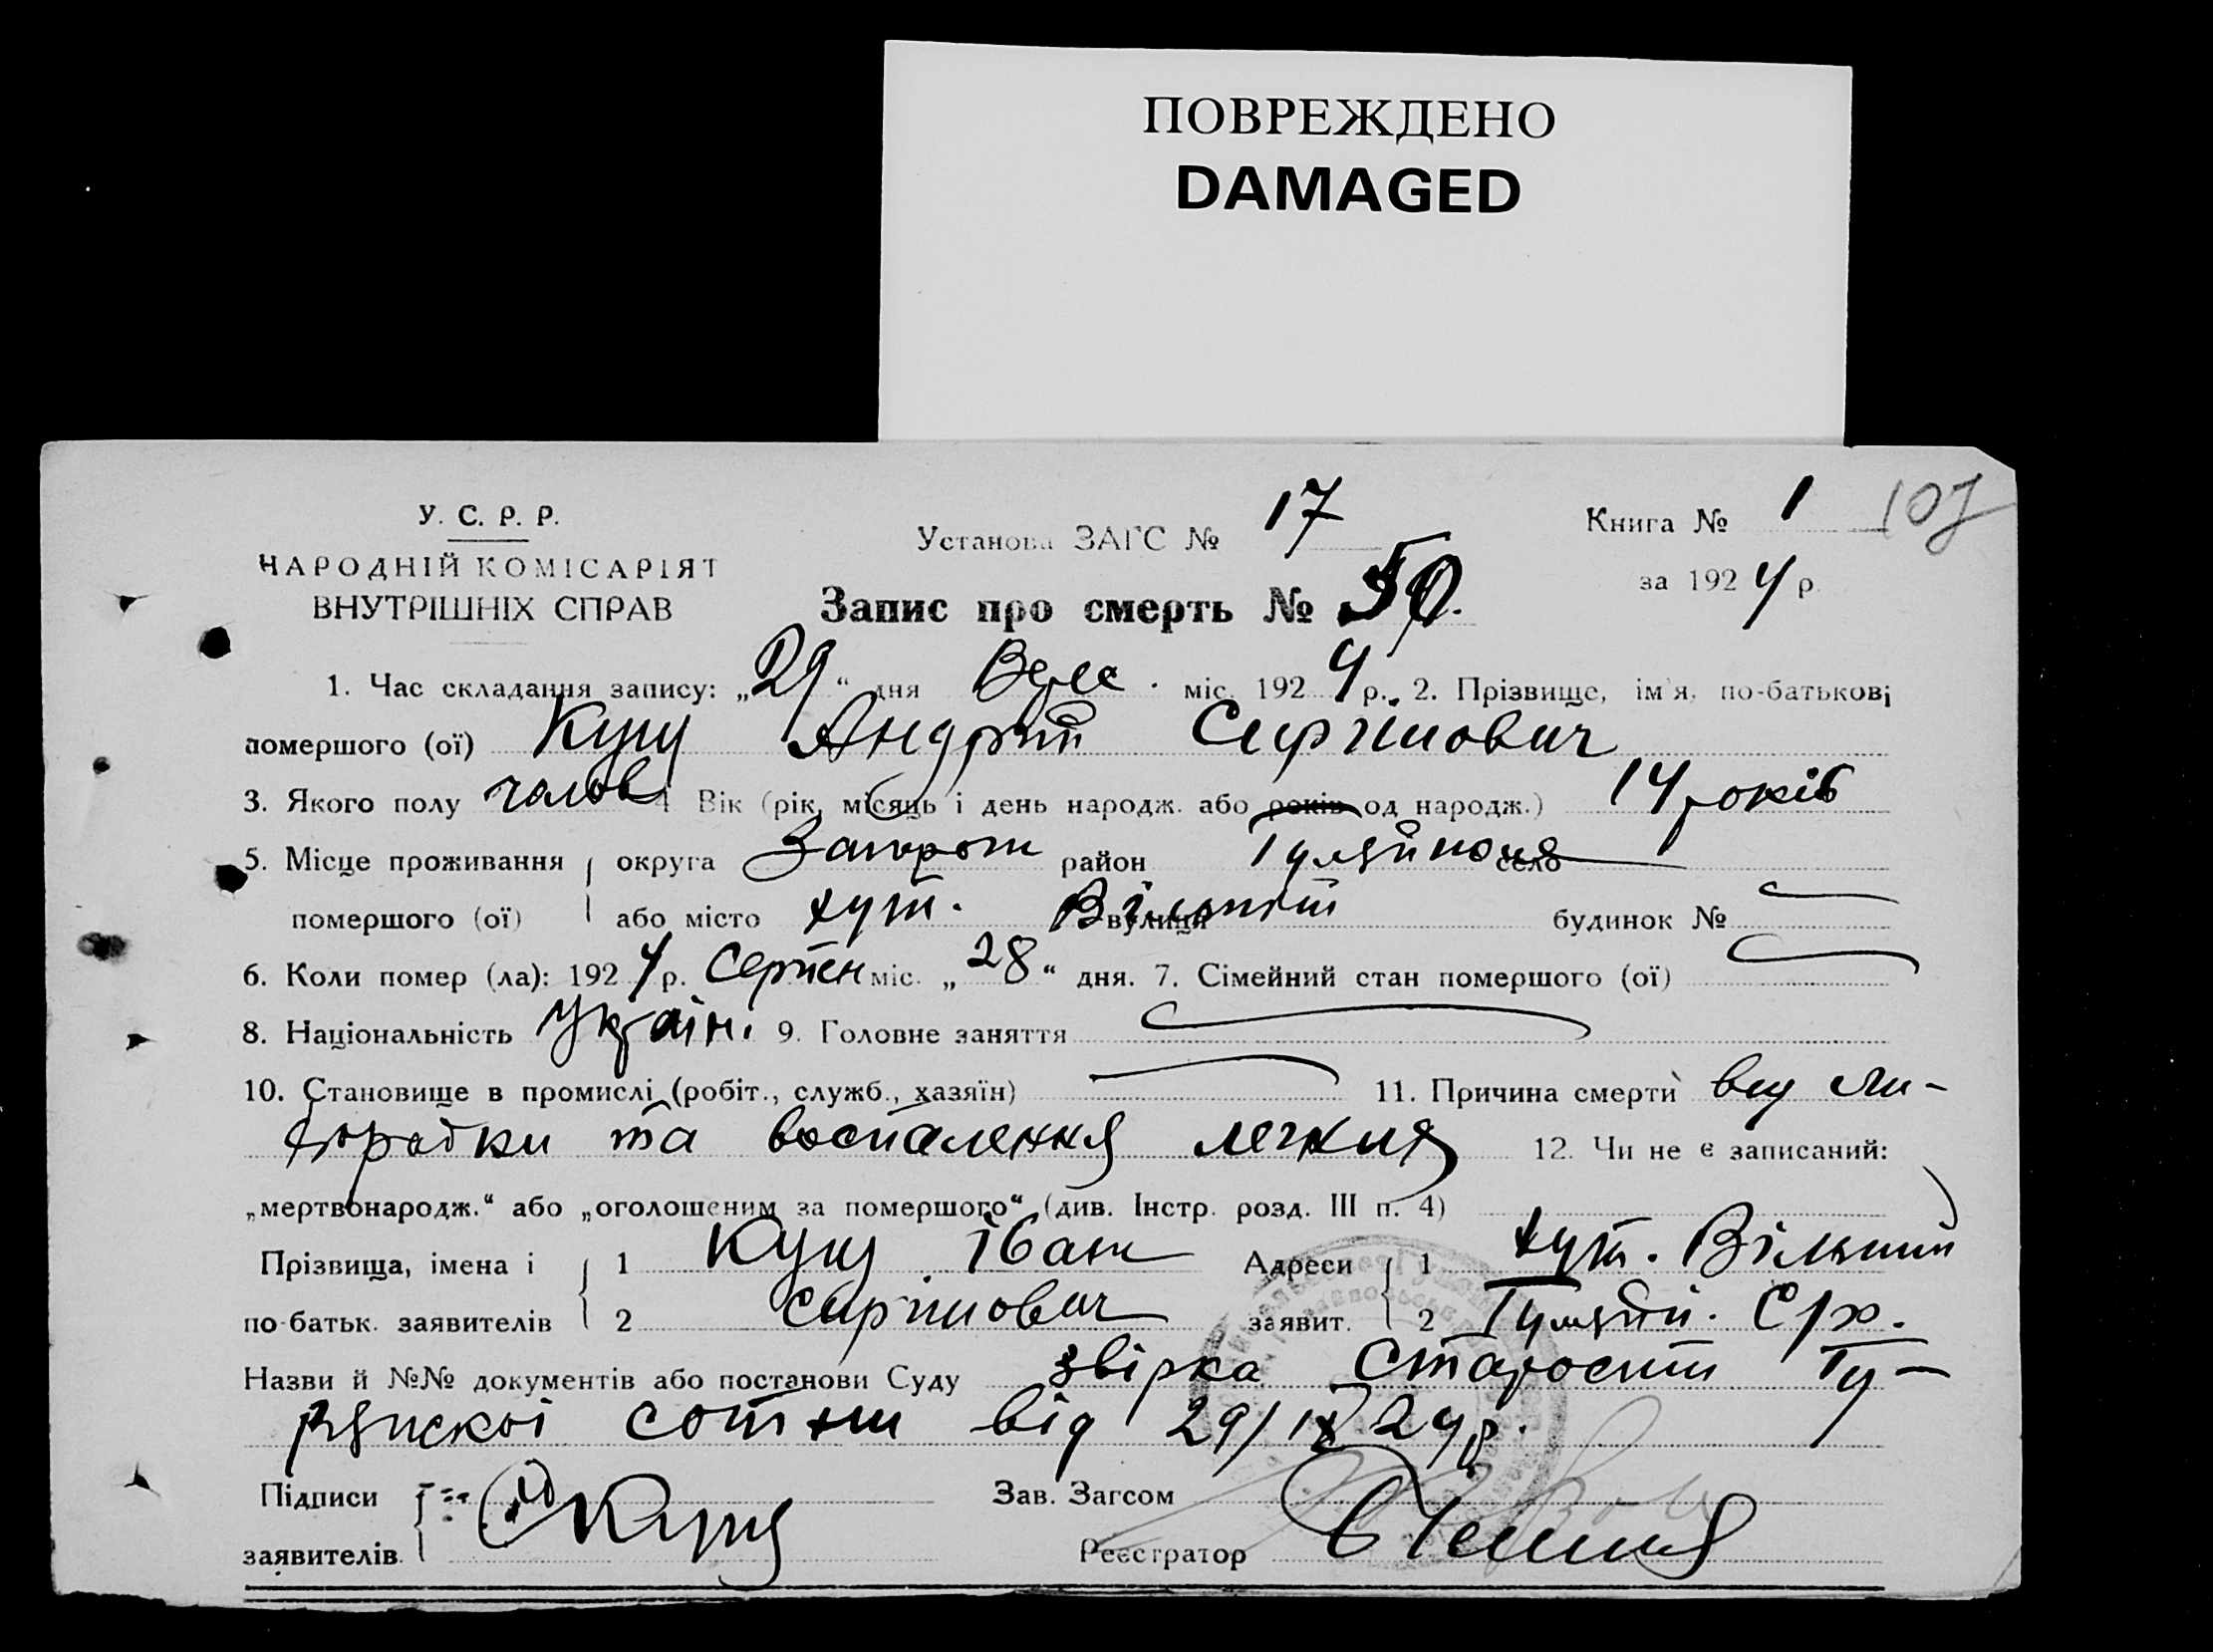 ПОВРЕЖДЕНО
DAMAGED
У. С. Р. Р.
НАРОДНІЙ КОМІСАРІЯТ
ВНУТРІШНІХ СПРАВ
Установа ЗАГС № 17
Книга № 1 107
за 1924 р.
Запис про смерть № 50.
1. Час складання запису: „29“ дня Верес. міс. 1924 р. 2. Прізвище, ім'я, по-батькові
помершого (ої) Куц Андрій
3. Якого полу чолов 4 Вік (рік, місяць і день народж. або років од народж.) 14 років
5. Місце проживання округа район село
помершого (ої) або місто хут. Вільний вулиця будинок №
6. Коли помер (ла): 1924 р. Серпен міс. „28“ дня. 7. Сімейний стан помершого (ої)
8. Національність Україн. 9. Головне заняття
10. Становище в промислі (робіт., служб., хазяїн) 11. Причина смерти від ли-
хорадки та воспалення легких 12. Чи не є записаний:
„мертвонародж.“ або „оголошеним за помершого“ (див. Інстр. розд. III п. 4)
Прізвища, імена і 1 Куц Іван Адреси 1 хут. Вільний
по-батьк. заявителів 2 заявит. 2 Гуляйп. С/р.
Назви й №№ документів або постанови Суду звірка
сотни від 29/IX 24 р.
Підписи Куц Зав. Загсом
заявителів Реєстратор